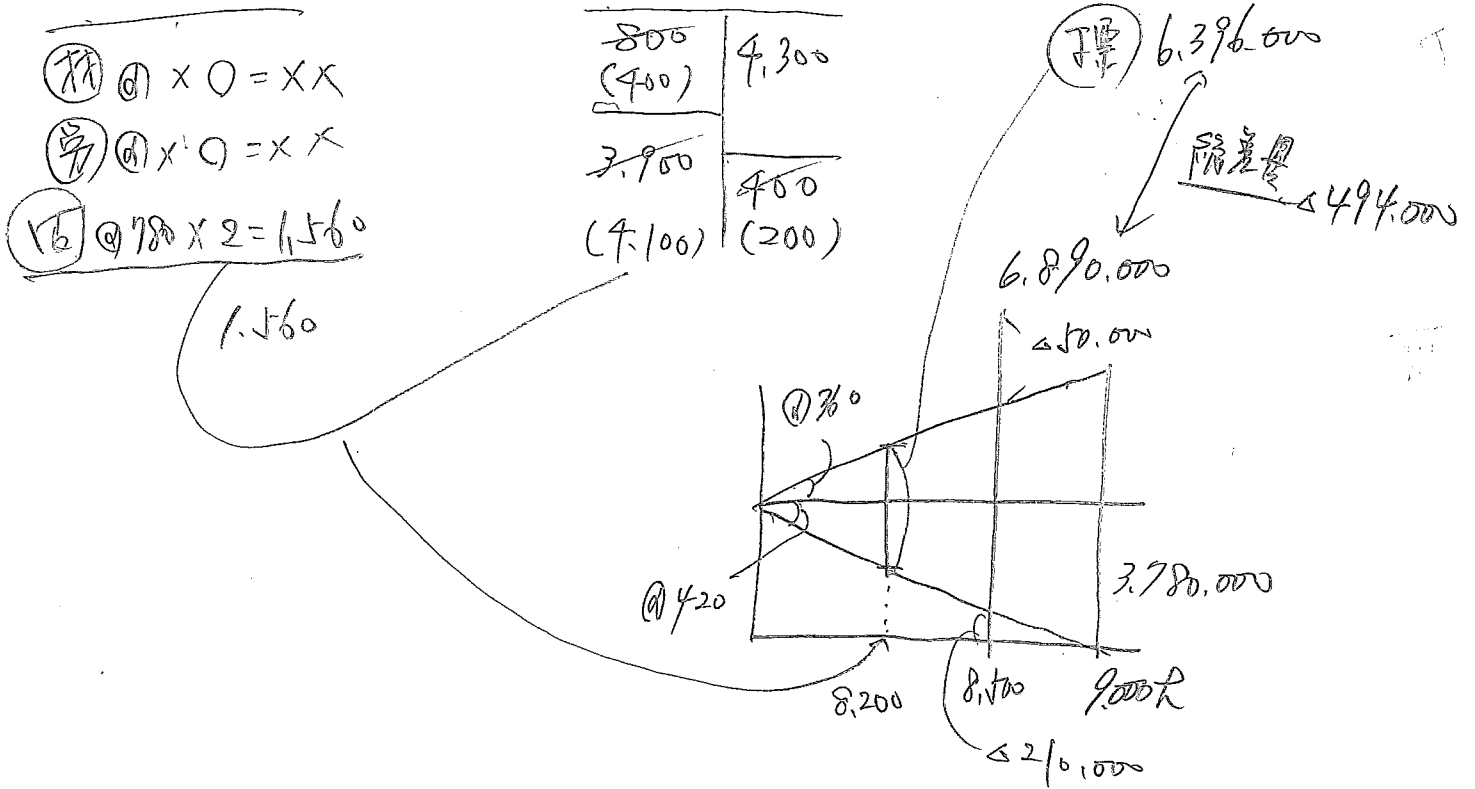 材 @ × 〇 = ××
労 @ × 〇 = ××
@780 × 2 = 1,560
1.560
800
(400)
3.900
(4.100)
4,300
400
(200)
標 6.396.000
総差異
△494.000
6.890.000
△50.000
@360
@420
3.780.000
8.200
8,500
9.000h
△210,000